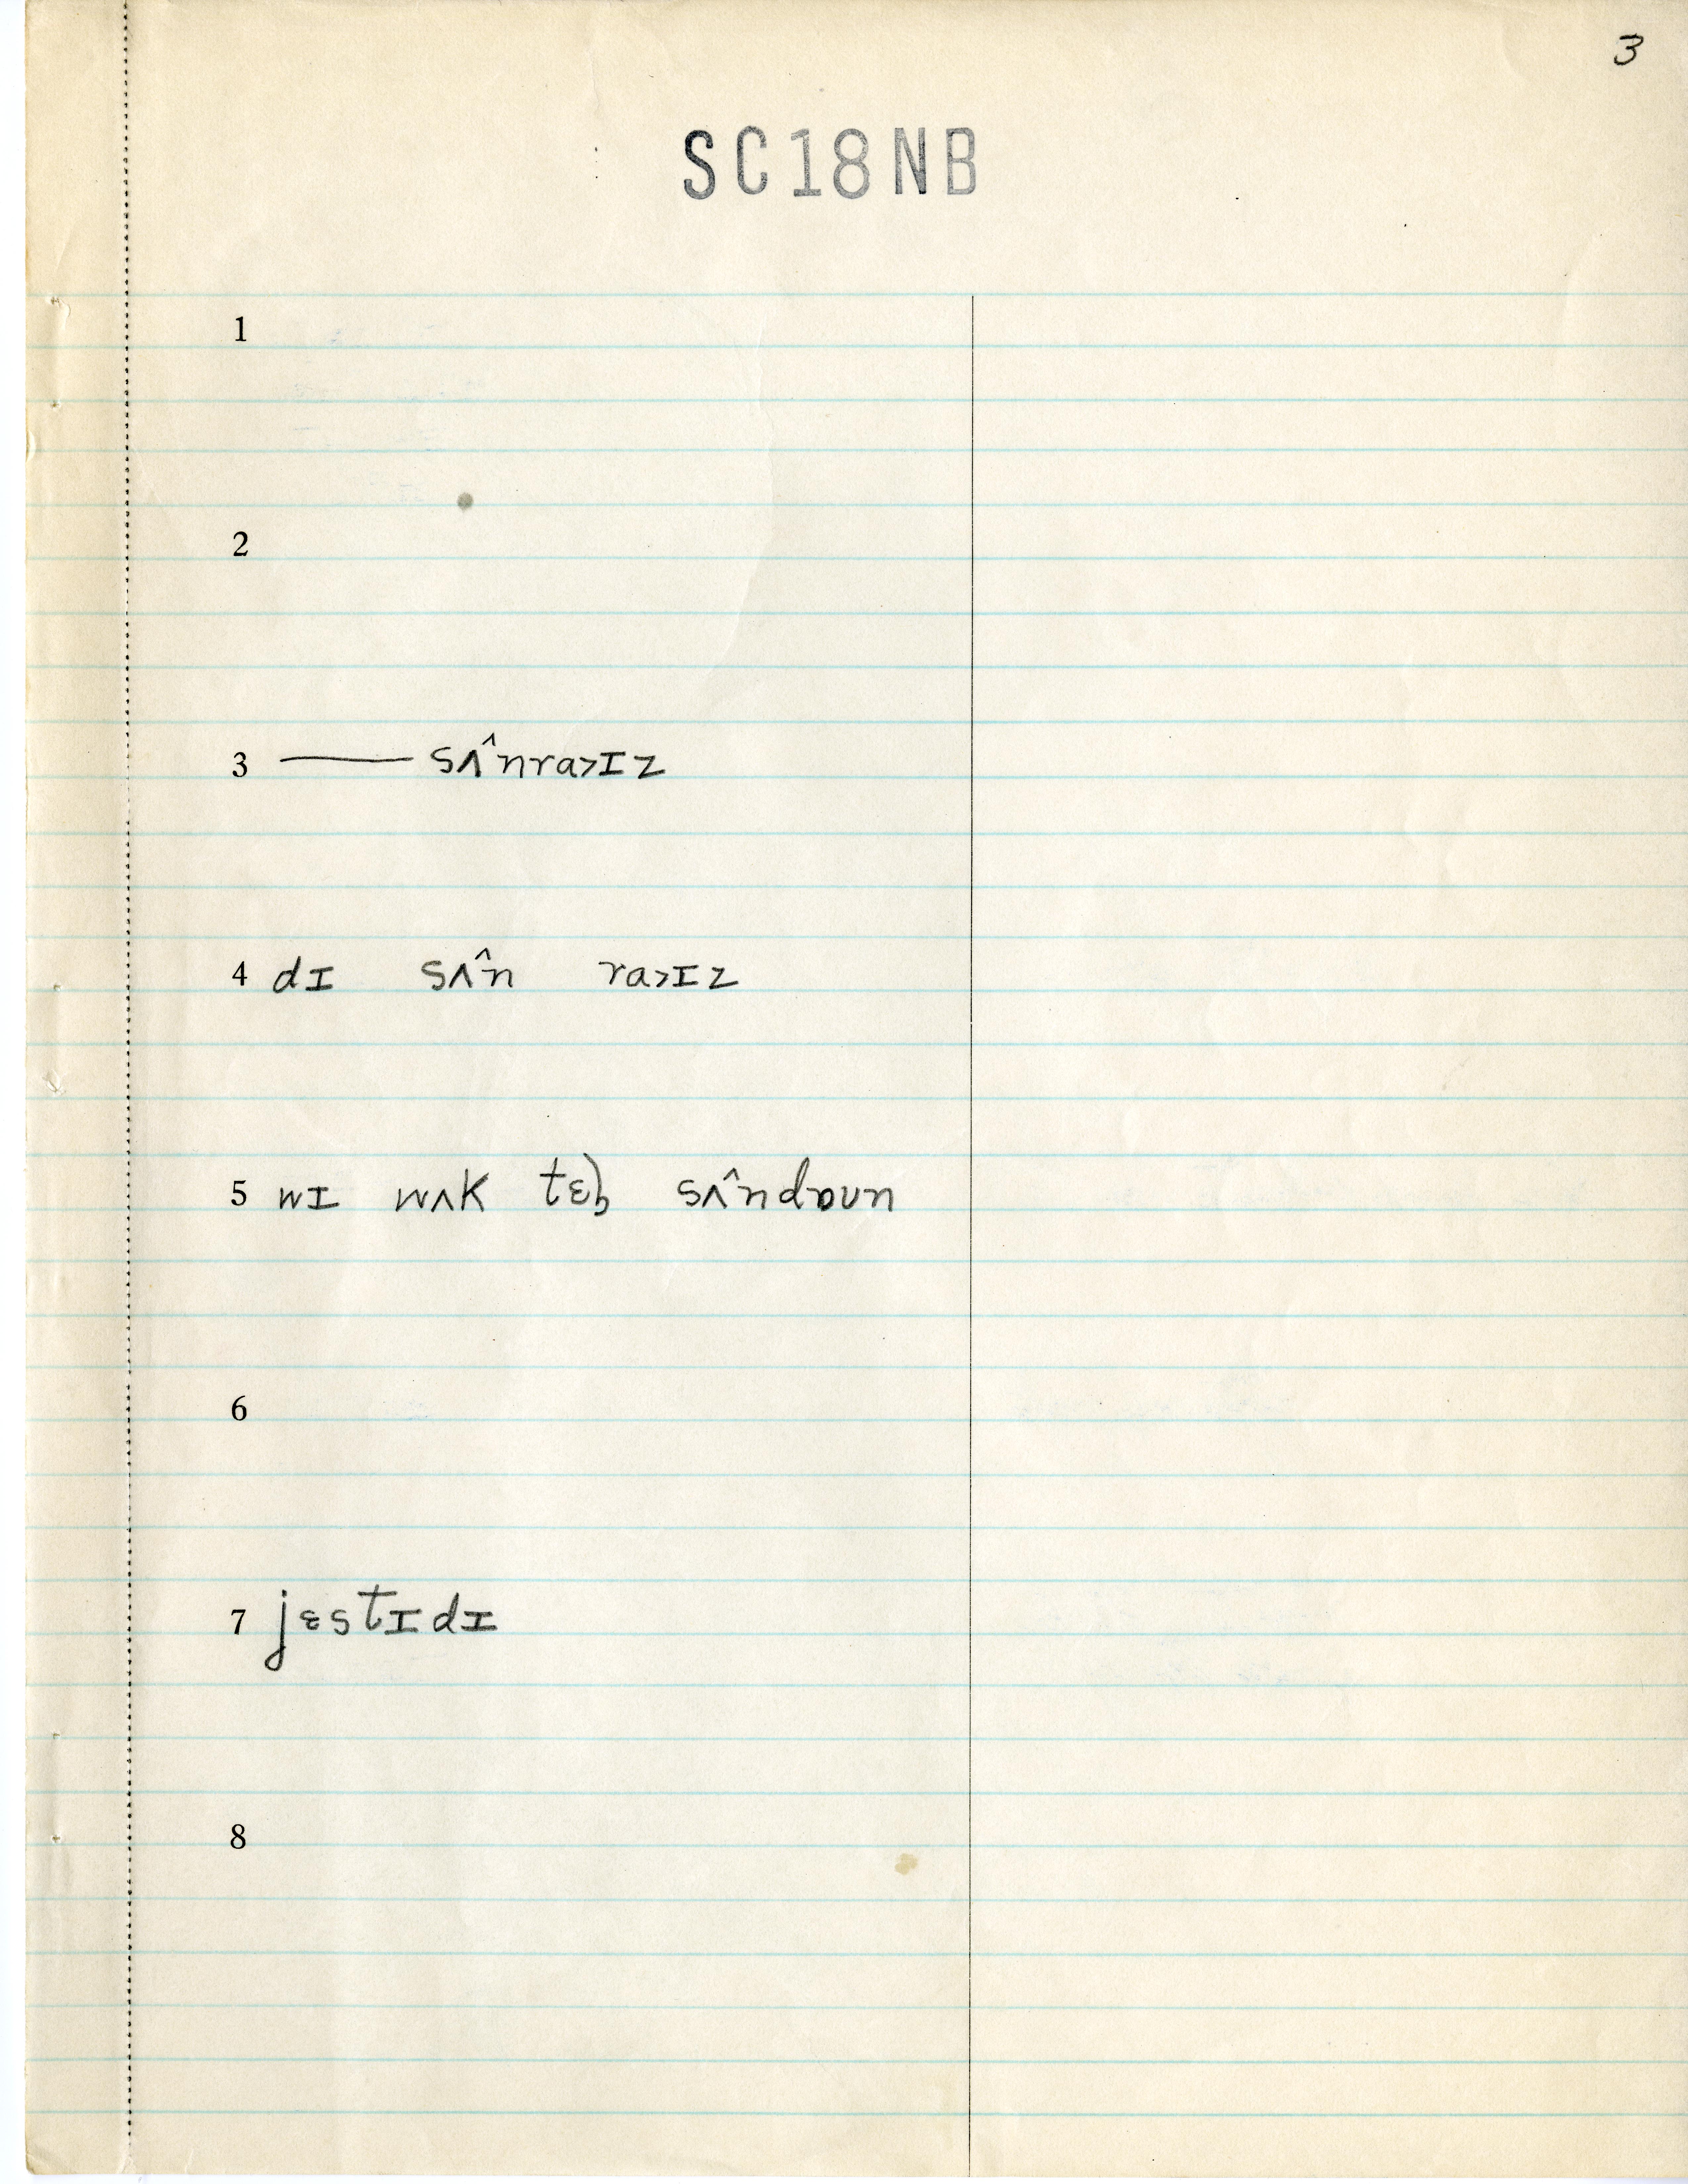 3
SC18NB
1
2
3 —— sʌ̂nra˃ɪz
4 dɪ sʌ̂n ra˃ɪz
5 wɪ wʌk tɪl sʌ̂ndɒʊn
6
7 jɛstɪdɪ
8